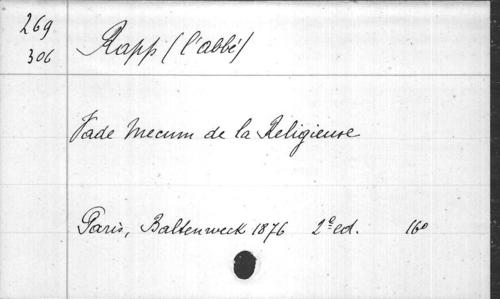 269
306
Rapp (l'abbé)
Vade Mecum de la Religieuse
Paris, Baltenweck 1876 2e ed. 16o